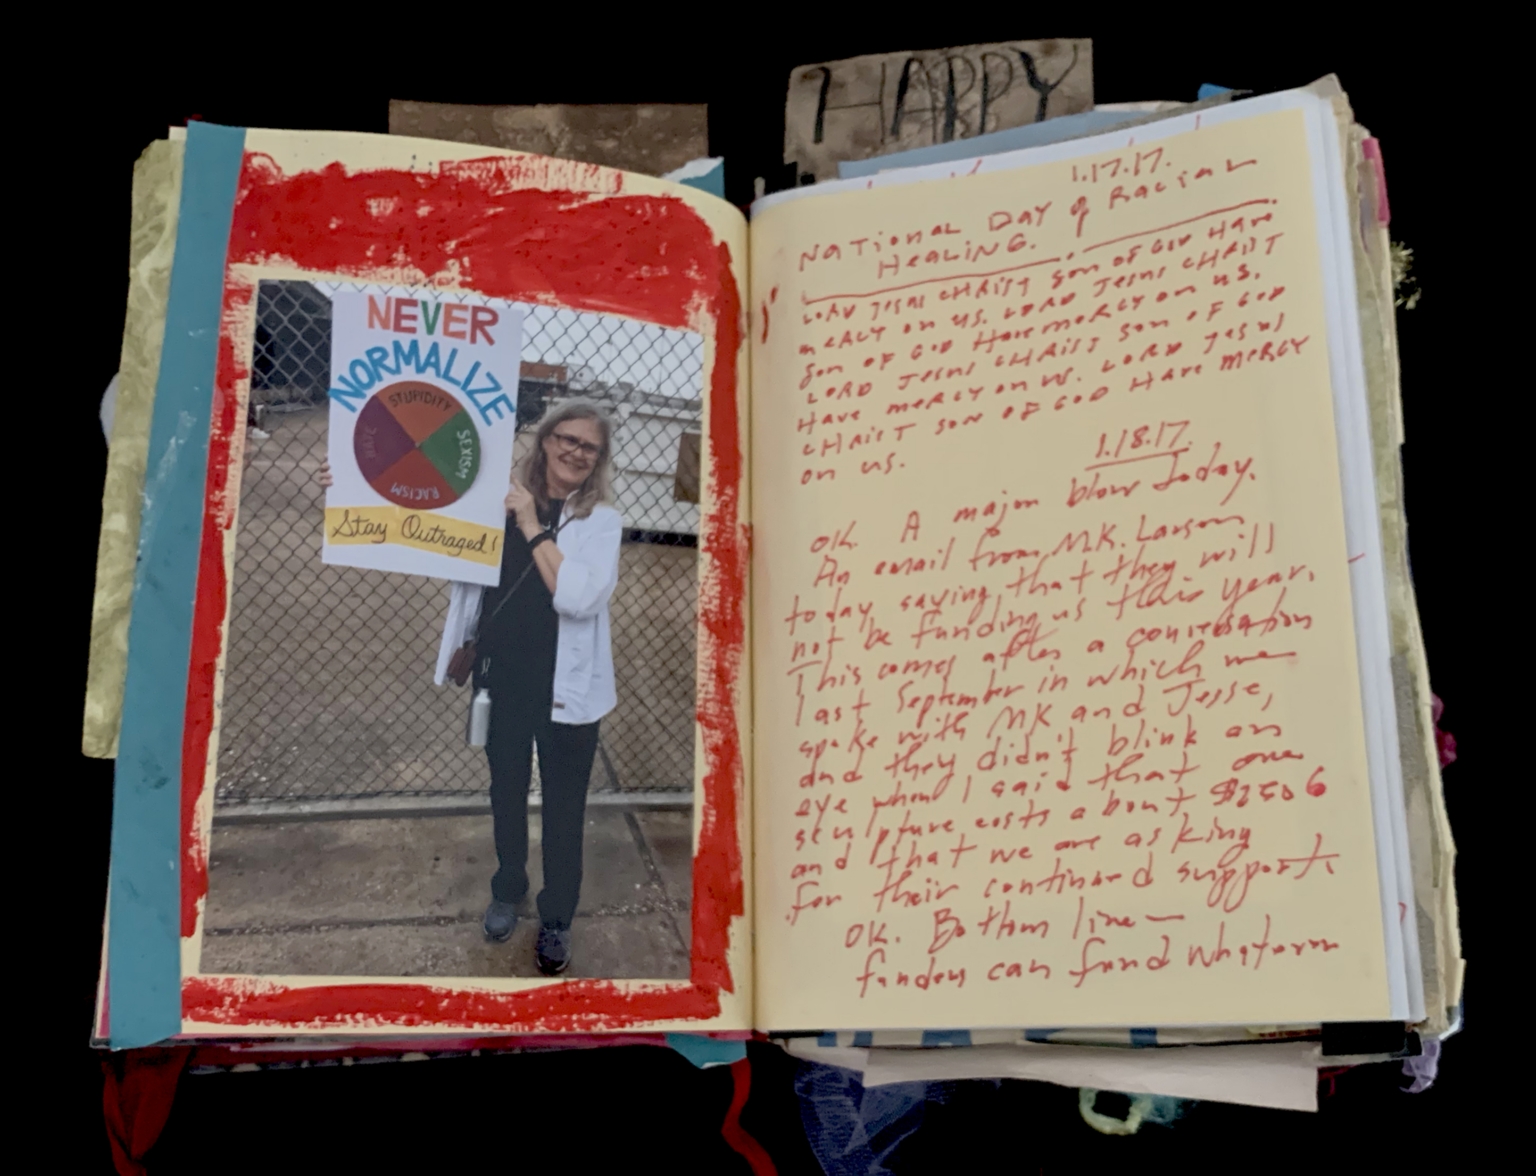 HAPPY
NEVER
NORMALIZE
STUPIDITY
SEXISM
RACISM
Stay Outraged!
1.17.17.
National Day of Racial
Healing.
Lord Jesus Christ son of God Have
mercy on us. Lord Jesus Christ
Son of God Have mercy on us.
Lord Jesus Christ son of God
Have mercy on us. Lord Jesus
Christ son of God Have mercy
on us.
1.18.17.
OK. A major blow today.
An email from M.K. Larson
today saying that they will
not be funding us this year.
This comes after a conversation
last September in which we
spoke with MK and Jesse,
and they didn't blink an
eye when I said that one
sculpture costs about
and that we are asking
for their continued support.
OK. Bottom line—
funders can fund whatever